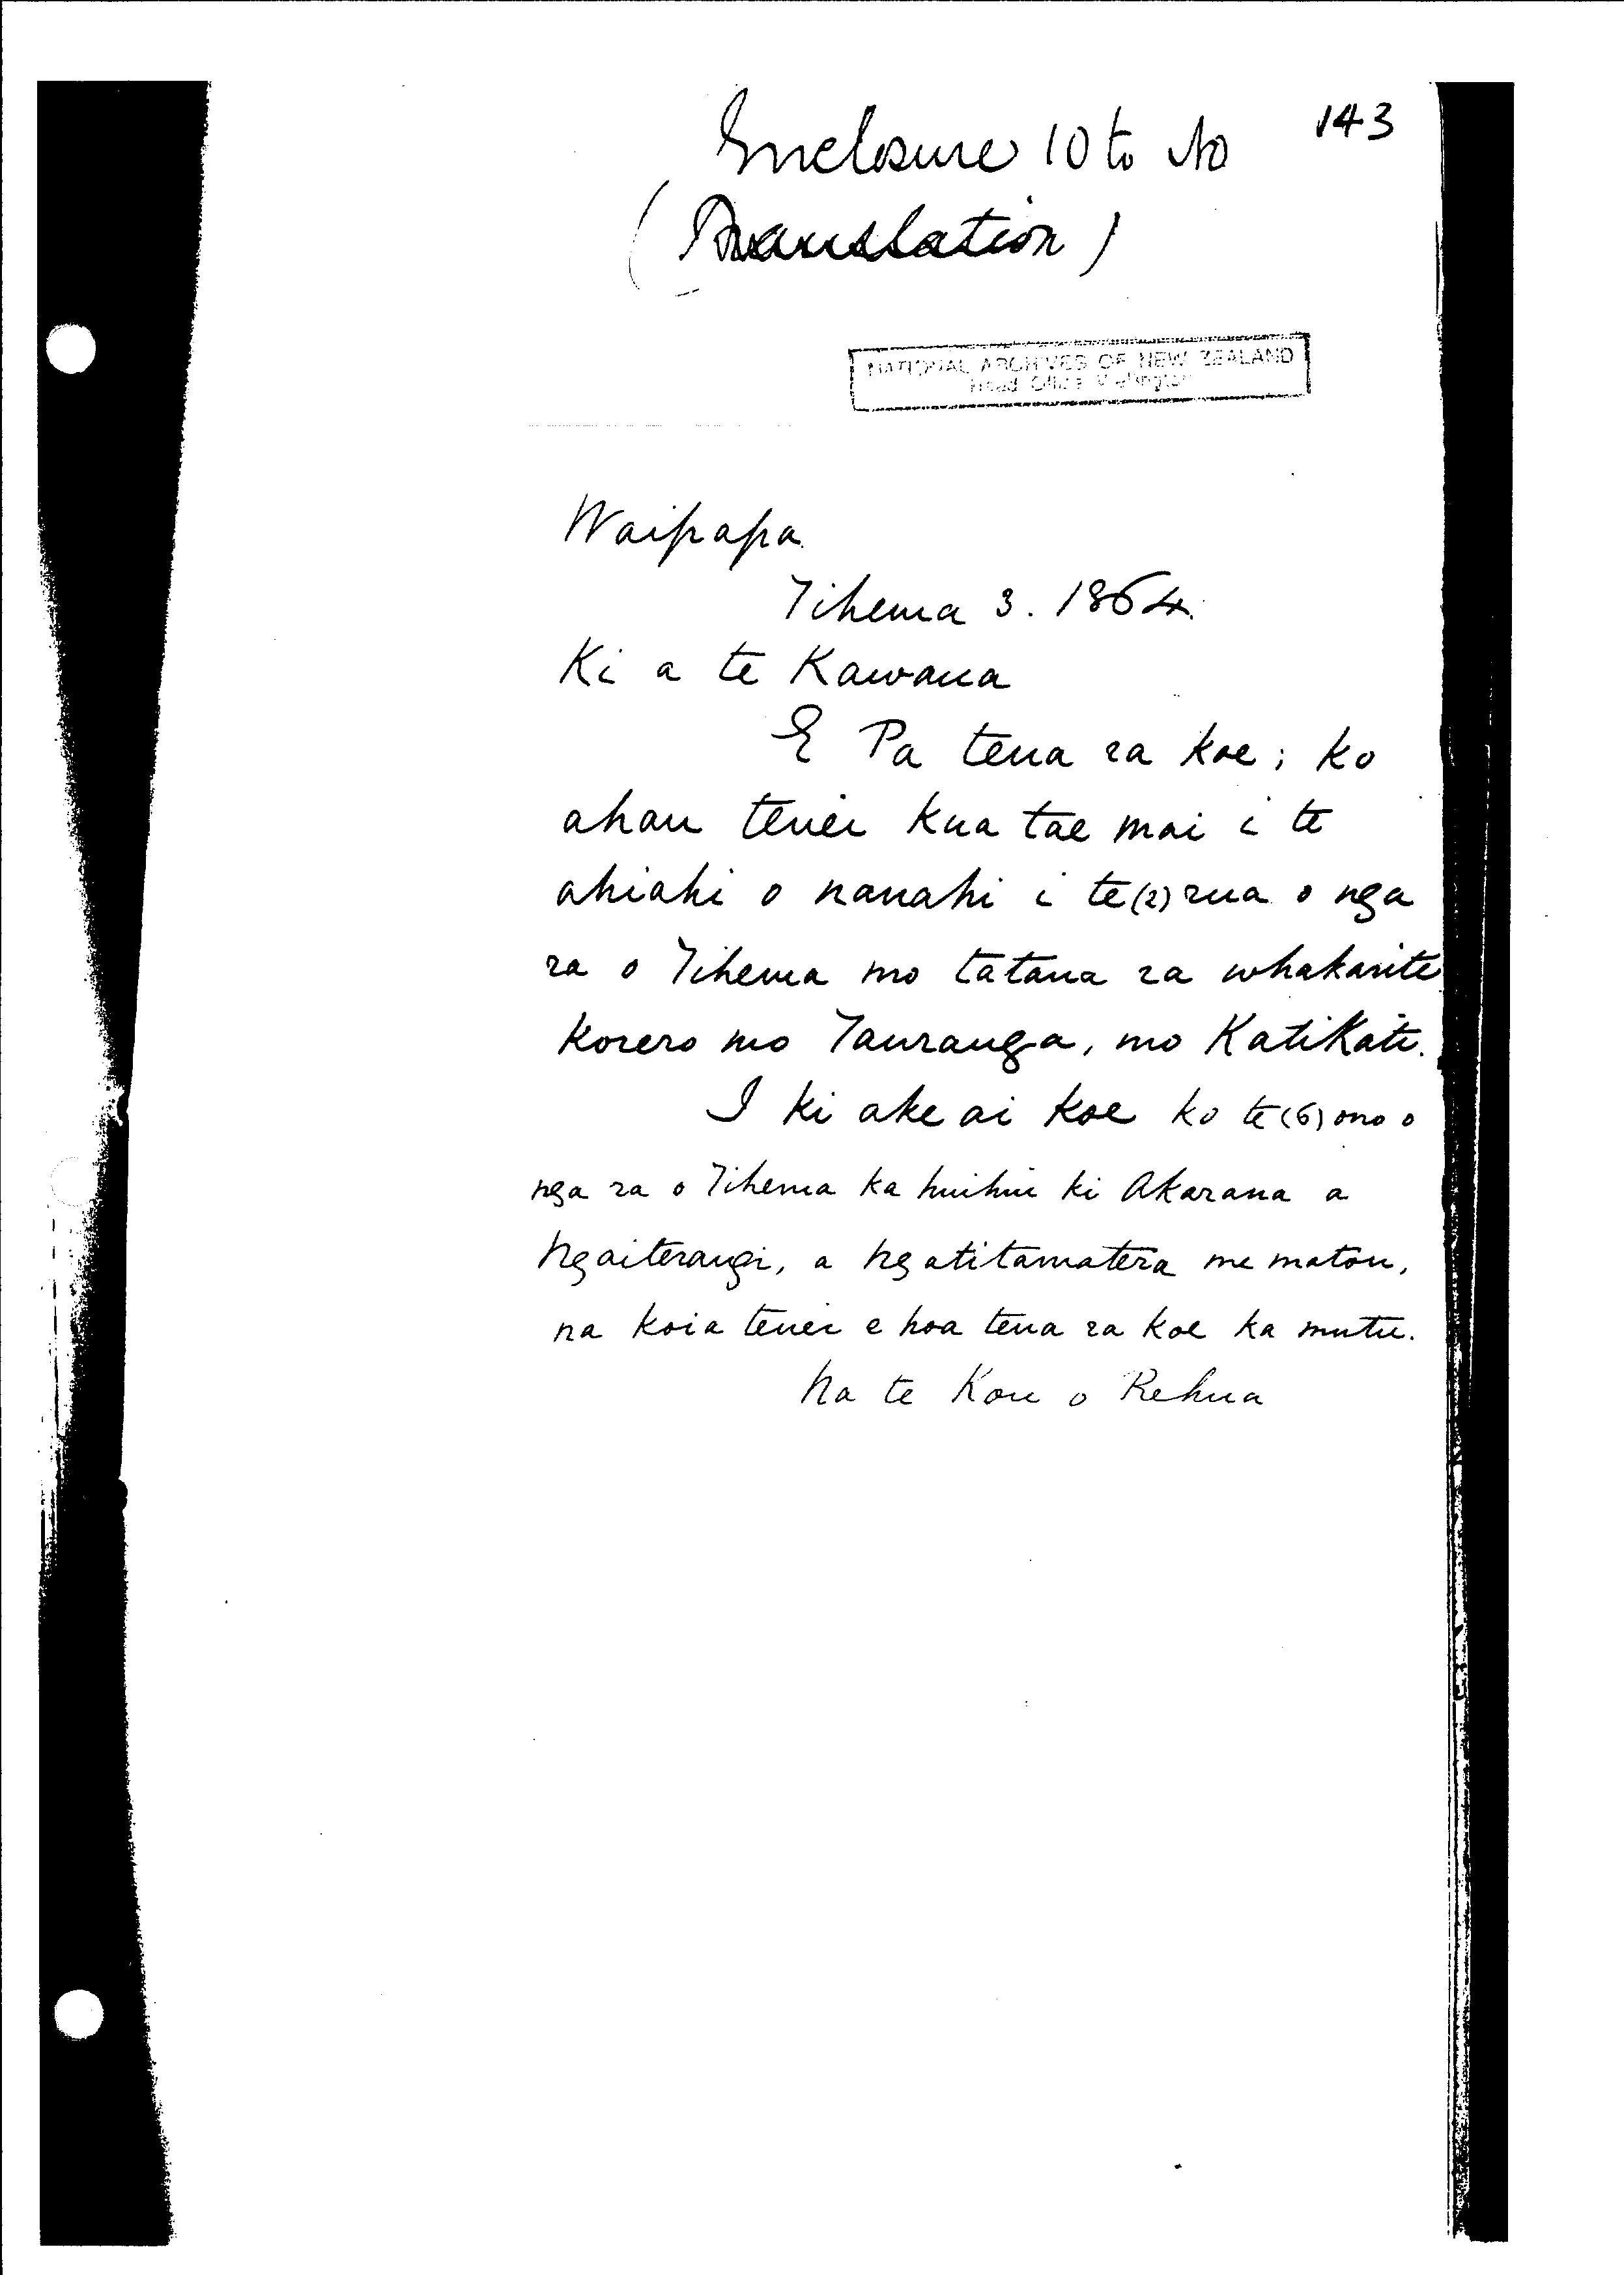 143
Enclosure 10 to No
(Translation)
NATIONAL ARCHIVES OF NEW ZEALAND
Head Office Wellington
Waipapa
Tihema 3. 1864.
Ki a te Kawana
E Pa tena ra koe; ko
ahau tenei kua tae mai i te
ahiahi o nanahi i te (2) rua o nga
ra o Tihema mo tatana ra whakarite
korero mo Tauranga, mo Katikati.
I ki ake ai koe ko te (6) ono o
nga ra o Tihema ka huihui ki Akarana a
Ngaiterangi, a Ngatitamatera me matou,
na koia tenei e hoa tena ra koe ka mutu.
Na te Kou o Rehua